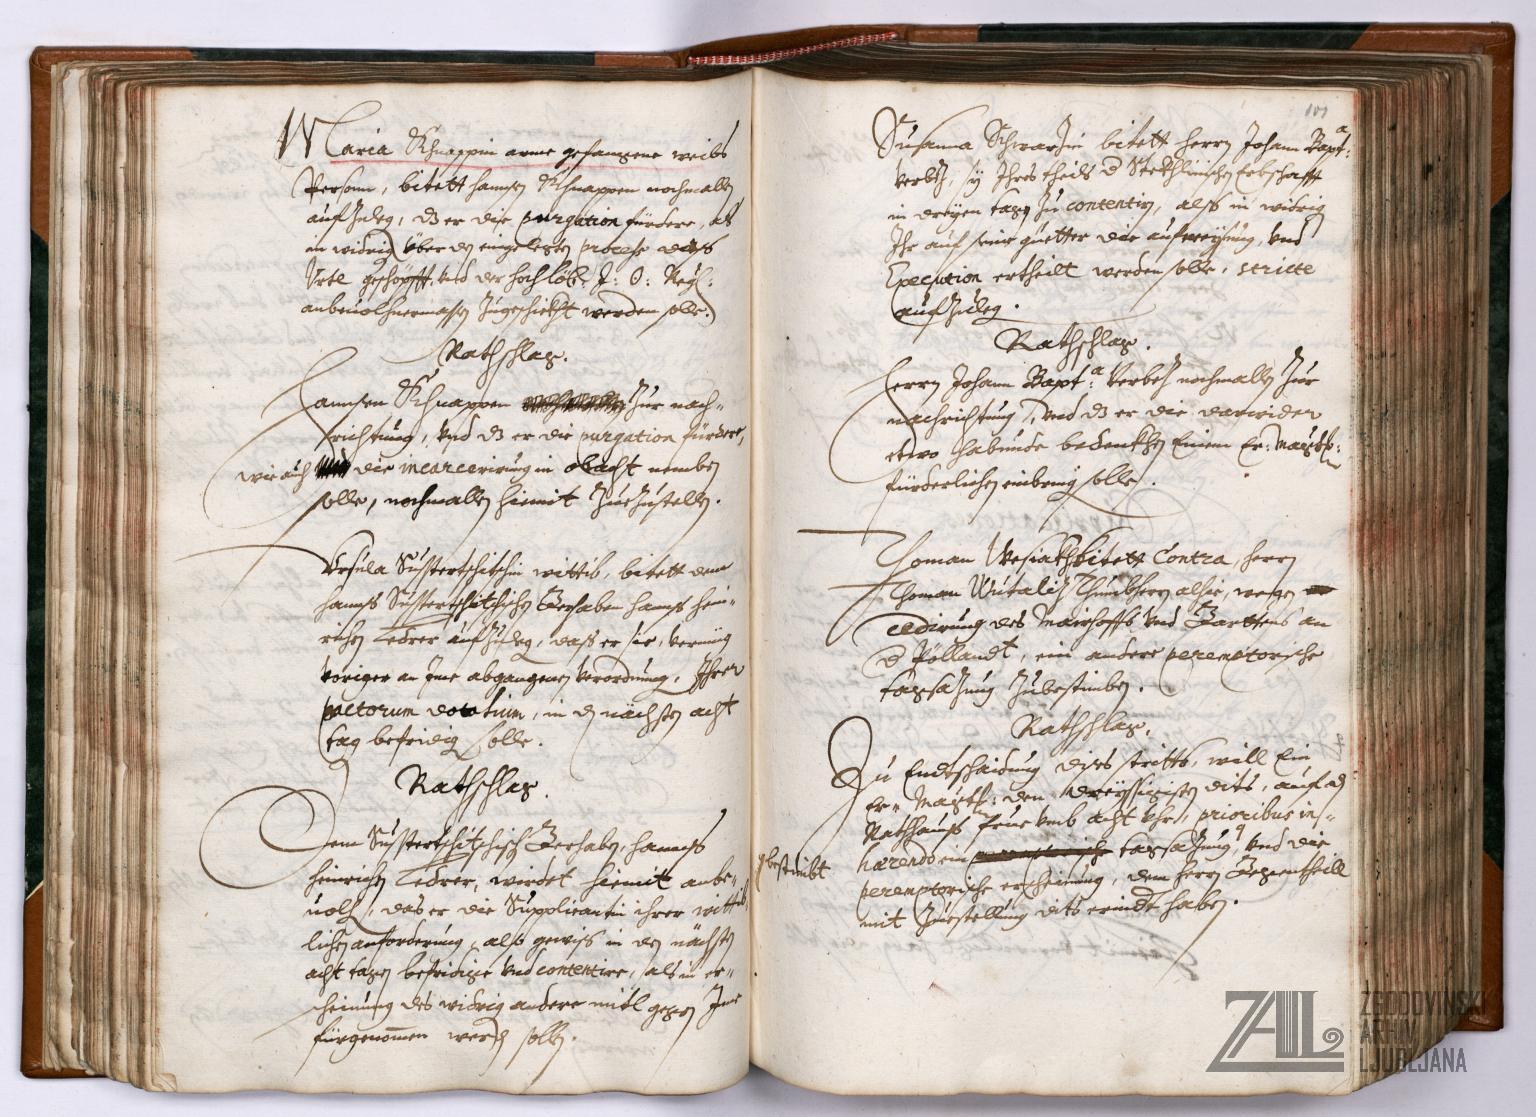 Maria Khnappin arme gefangene weibs
Persohn, bitett hannsen Khnappen nochmallen
aufzulegen, dz er die purgation fürdere, als
in widrig über den eingelegten process diess
Urtl geschopfft, und der hochlöb: I: O: Regi:
anbevolhnermassen zugeschickht werden solle.
Rathschlag.
Hannsen Khnappen zur nach-
richtung, und dz er die purgation fürdere,
wie auch die incarcerirung in obacht nemben
solle, nochmallen hiemit zuezustellen.
Ursula Susstertschitschin wittib, bitett dem
hanns Susstertschitschischen Gerhaben hanns hein-
richen Ledrer aufzulegen, dass er sie, vermüg
voriger an Ime abgangenen verordnung, Ihrer
pactorum dotalium, in den nächsten acht
tag befridigen solle.
Rathschlag.
Dem Susstertschitschischen Gerhaben, hannss
heinrichen Ledrer, wirdet hiemit anbe-
volhen, das er die Supplicantin ihrer wittib-
lichen anforderung, also gewiss in den nächsten
acht tagen befridige und contentire, als in er-
scheinung des widrig andere mitl gegen Ime
fürgenommen werden sollen.
101
Susanna Schwarzin bitett herrn Johann Bapt:a
Verbez, sy Ihres theils der Steklinischen Erbschafft
in dreyen tagen zu contentirn, alss in widrig
Ihr auf seine güetter die answeisung, und
Execution ertheilt werden solle, stricte
aufzulegen.
Rathschlag.
Herrn Johann Bapt:a Verbez nochmallen zur
nachrichtung, und dz er die darwider
etwo habende bedenkhen Einem Er: Magist:
fürderlichen einbring solle.
Thoman bitett Contra, herrn
Thoman Wutalizh Thumbherrn alhie, wegen
cedirung des Mairhoffs und Garttens an
der Pöllandt, ein andere peremptorische
tagsazung zubestimben.
Rathschlag.
Zu Endtschaidung dises stritts, will Ein
Er: Magist: den dreyssigisten dits, auf dem
Rathhauss frue umb acht Uhr, prioribus in-
haerendo ein tagsazung, und die
bestimbt
peremptorische erscheinung, dem herrn Gegentheill
mit zuestellung dits erindert haben.
ZAL
ZGODOVINSKI
ARHIV
LJUBLJANA